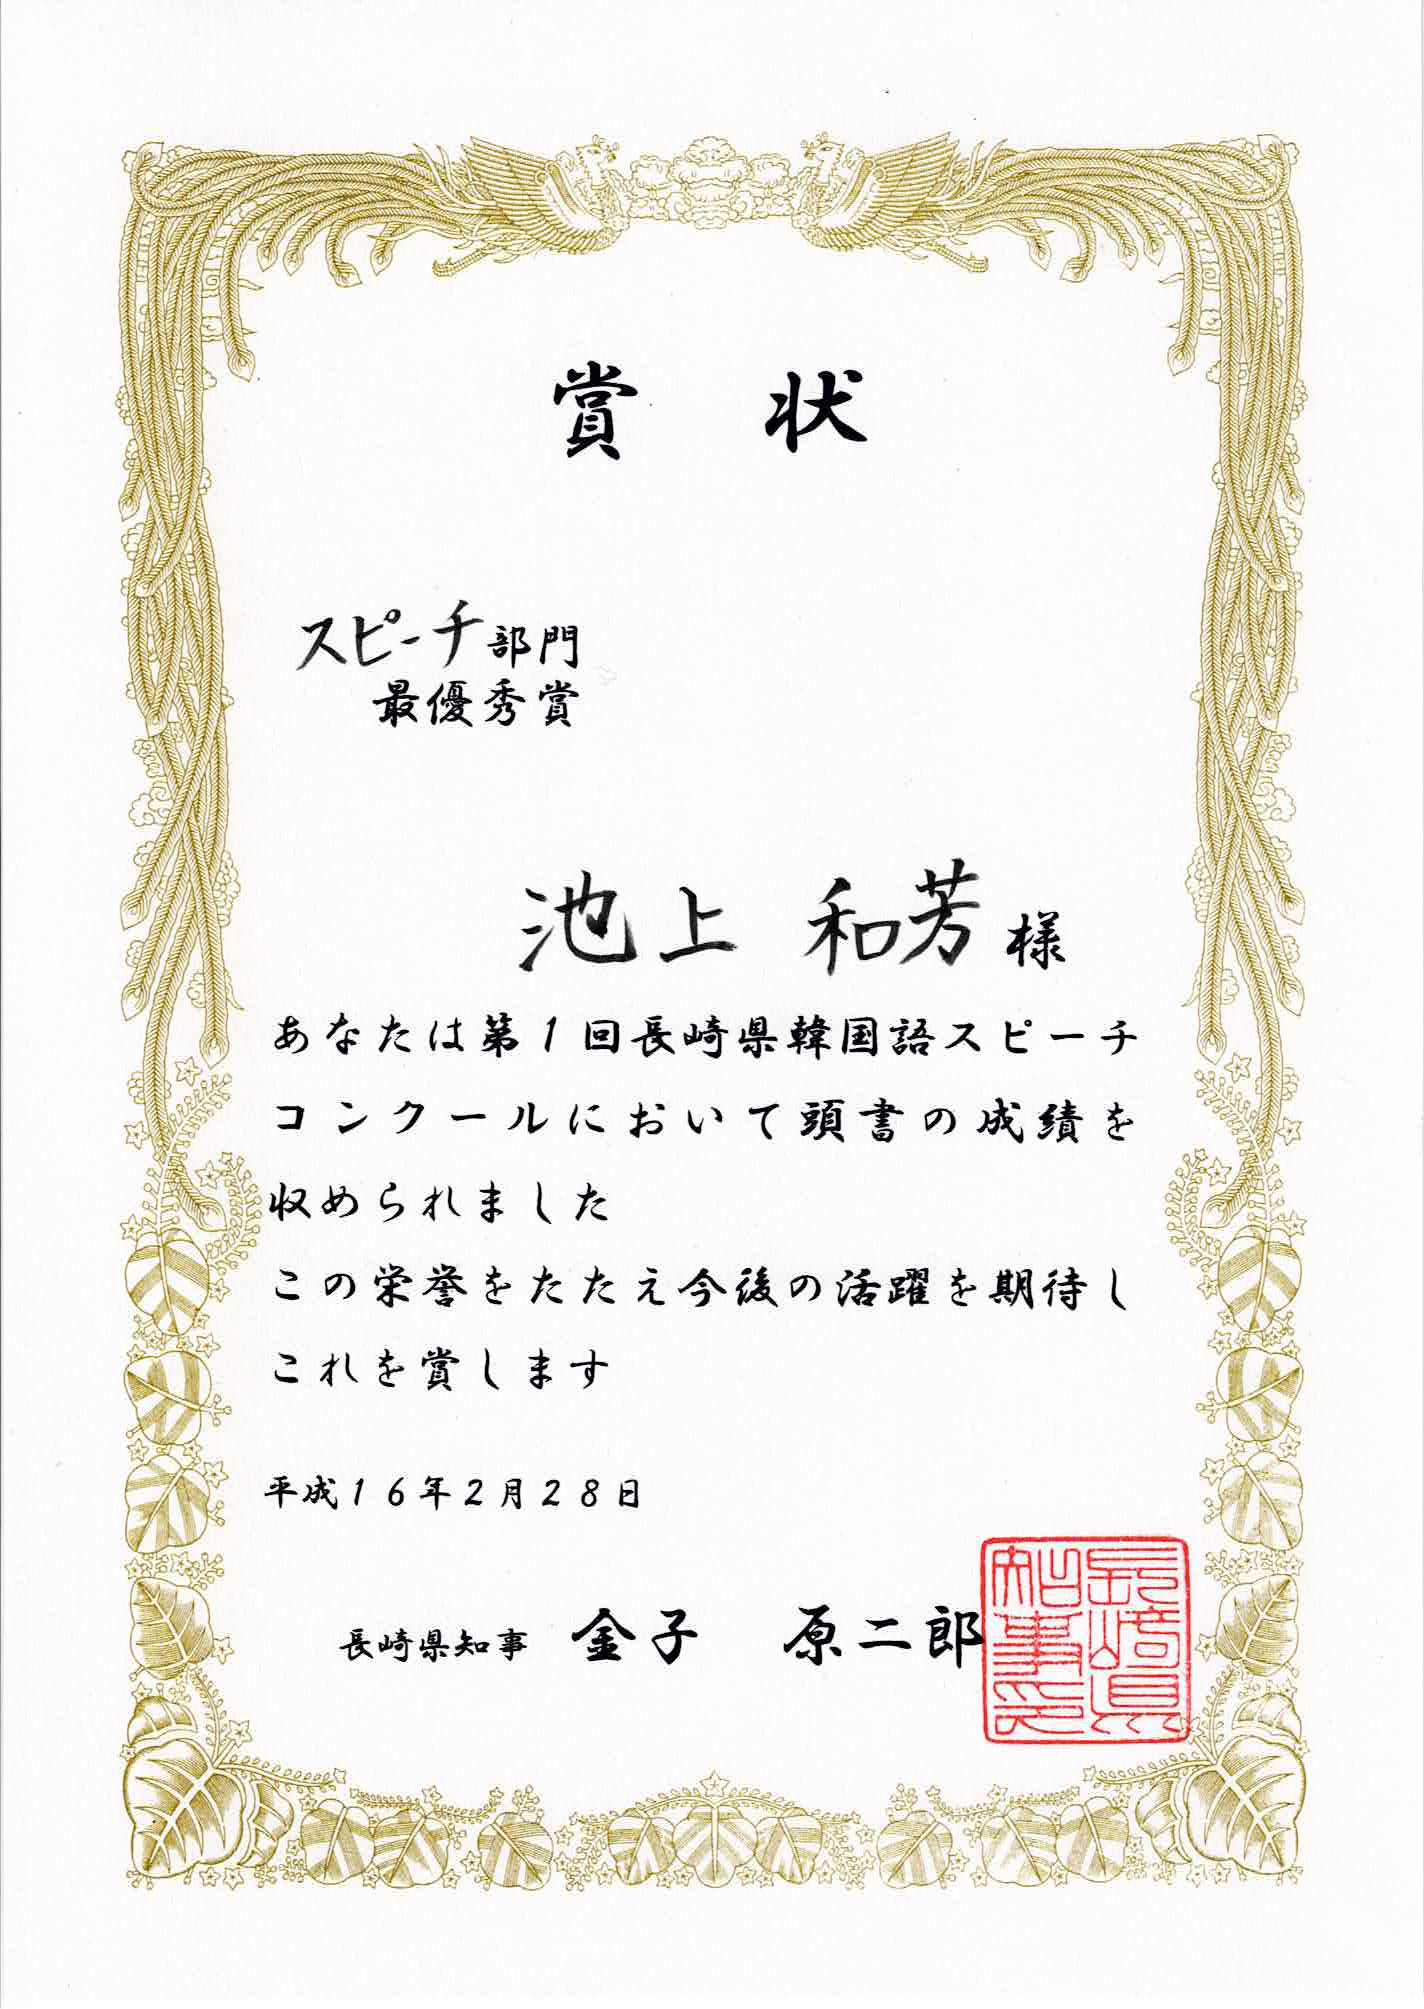 賞 状
スピーチ部門
最優秀賞
池上 和芳 様
あなたは第1回長崎県韓国語スピーチ
コンクールにおいて頭書の成績を
収められました
この栄誉をたたえ今後の活躍を期待し
これを賞します
平成16年2月28日
長崎県知事 金子 原二郎
長崎県
知事印